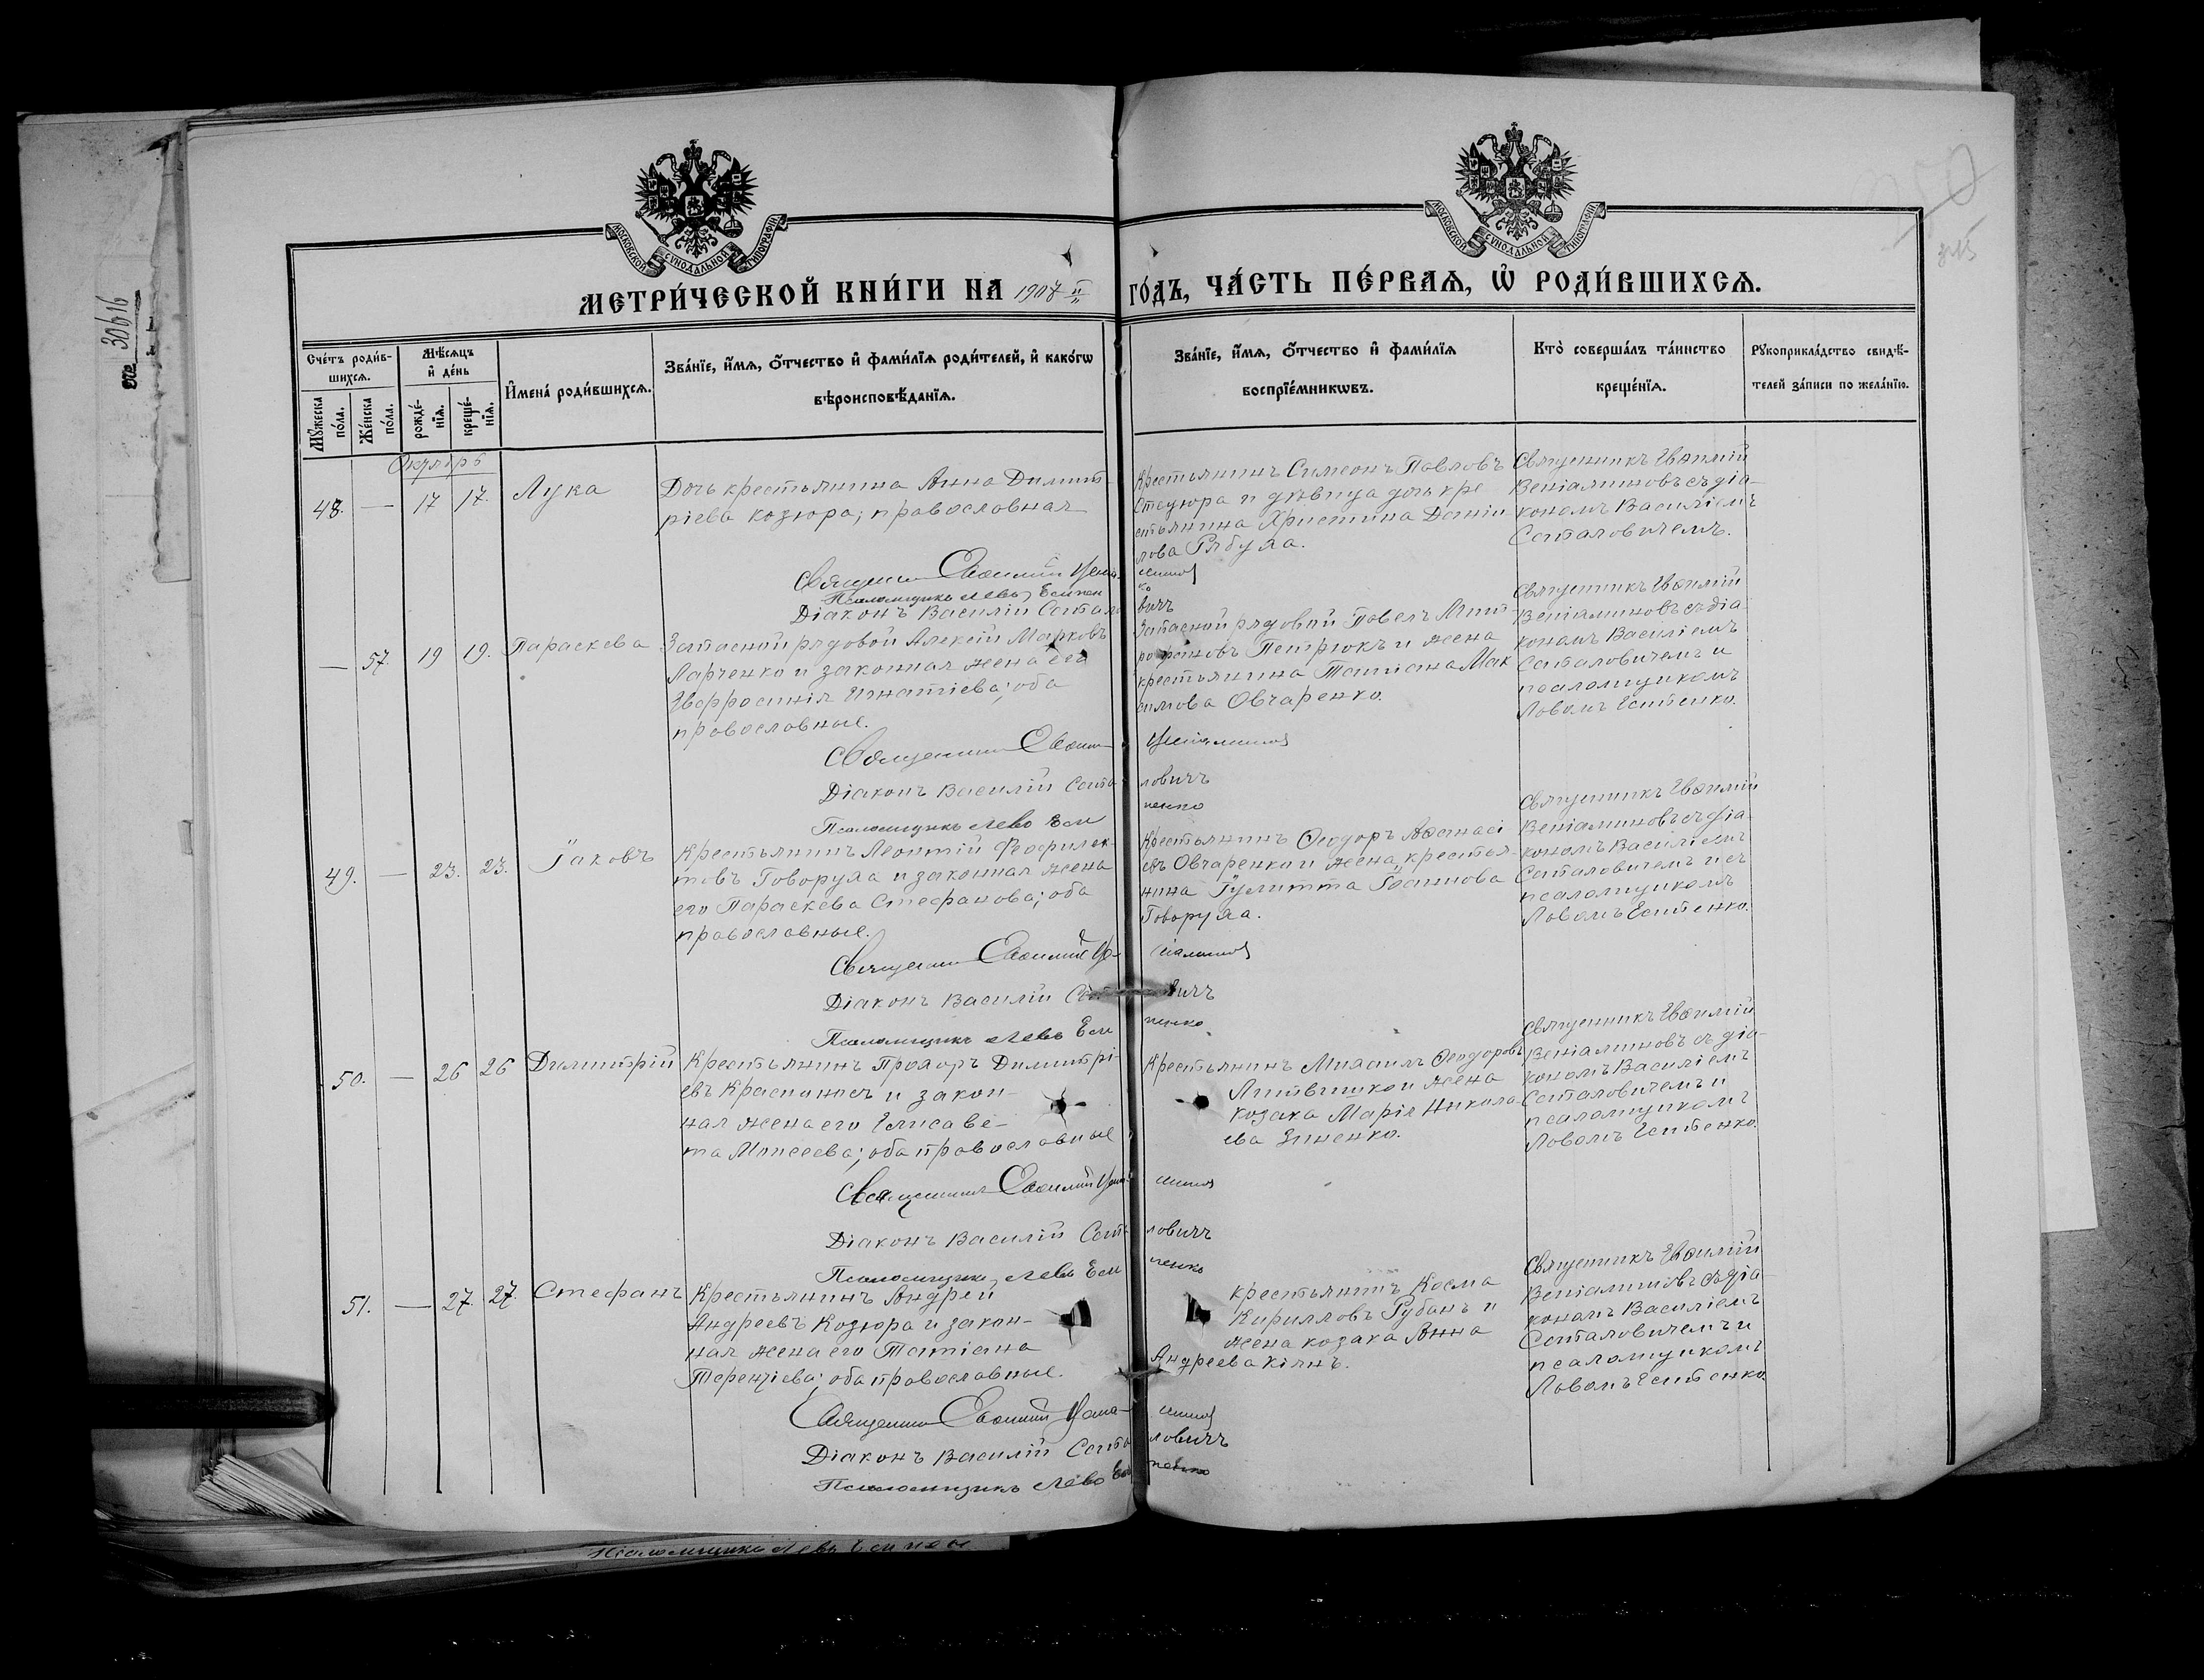 МОСКОВСКОЙ СѴНОДАЛЬНОЙ ТИПОГРАФІИ
МОСКОВСКОЙ СѴНОДАЛЬНОЙ ТИПОГРАФІИ
МЕТРИ́ЧЕСКОЙ КНИ́ГИ НА 1908 й
ГО́ДЪ, ЧА́СТЬ ПЕ́РВАѦ, Ѡ҆ РОДИ́ВШИХСѦ.
Сче́тъ роди́в-
шихсѧ.
Мꙋ́жеска
по́ла.
Же́нска
по́ла.
Мѣ́сѧцъ
и҆ де́нь
рожде́-
нїѧ.
креще́-
нїѧ.
И҆мена̀ роди́вшихсѧ.
Зва́нїе, и҆́мѧ, ѻ҆́тчество и҆ фами́лїѧ роди́телей, и҆ како́гѡ
вѣ́роисповѣ́данїѧ.
Зва́нїе, и҆́мѧ, ѻ҆́тчество и҆ фами́лїѧ
воспрїе́мникѡвъ.
Кто̀ соверша́лъ та́инство
креще́нїѧ.
Рꙋкоприкла́дство свидѣ́-
телей за́писи по жела́нїю.
Октябрь
48. — 17 17. Лука
Дочь крестьянина Анна Димит-
ріева Козюра; православная
Крестьянинъ Симеонъ Павловъ
Стацюра и дѣвица дочь кре
стьянина Христина Даніи-
лова Рябуха.
Священникъ Евѳимій
Веніаминовъ съ діа-
кономъ Василіемъ
Саталовичемъ.
Священникъ Евѳимій Веніаминовъ
Псаломщикъ Левъ Есипенко
Діаконъ Василій Саталовичъ
— 57. 19 19. Параскева
Запасной рядовой Алексій Марковъ
Харченко и законная жена его
Евфросинія Игнатіева; оба
православные.
Запасной рядовой Павелъ Мит-
рофановъ Петрюкъ и жена
крестьянина Татіана Мак
симова Овчаренко.
Священникъ Евѳимій
Веніаминовъ съ діа-
кономъ Василіемъ
Саталовичемъ и
псаломщикомъ
Львомъ Есипенко.
Священникъ Евѳимій Веніаминовъ
Діаконъ Василій Саталовичъ
Псаломщикъ Левъ Есипенко
49. — 23. 23. Іаковъ
Крестьянинъ Леонтій Феофилак-
товъ Говоруха и законная жена
его Параскева Стефанова; оба
православные.
Крестьянинъ Ѳеодоръ Аѳанасі
евъ Овчаренко и жена крестья-
нина Іулитта Іоаннова
Говоруха.
Священникъ Евѳимій
Веніаминовъ съ діа-
кономъ Василіемъ
Саталовичемъ и съ
псаломщикомъ
Львомъ Есипенко.
Священникъ Евѳимій Веніаминовъ
Діаконъ Василій Саталовичъ
Псаломщикъ Левъ Есипенко
50. — 26 26 Димитрій
Крестьянинъ Прохоръ Димитрі-
евъ Краснонос и закон-
ная жена его Елисаве-
та Моисеева; оба православные
Крестьянинъ Михаилъ Ѳеодоровъ
Литвишко и жена
козака Марія Никола-
ева Зиненко.
Священникъ Евѳимій
Веніаминовъ съ діа-
кономъ Василіемъ
Саталовичемъ и
псаломщикомъ
Львомъ Есипенко.
Священникъ Евѳимій Веніаминовъ
Діаконъ Василій Саталовичъ
Псаломщикъ Левъ Есипенко
51. — 27. 27. Стефанъ
Крестьянинъ Андрей
Андреевъ Козюра и закон-
ная жена его Татіана
Терентіева; оба православные.
крестьянинъ Косма
Кирилловъ Рубанъ и
жена козака Анна
Андреева Кіянъ.
Священникъ Евѳимій
Веніаминовъ съ діа
кономъ Василіемъ
Саталовичемъ и
псаломщикомъ
Львомъ Есипенко
Священникъ Евѳимій Веніаминовъ
Діаконъ Василій Саталовичъ
Псаломщикъ Левъ Есипенко
Псаломщикъ Левъ Есипен